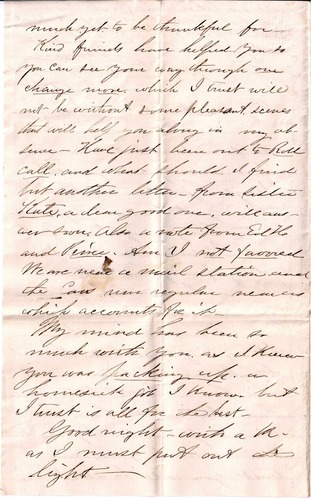 much yet to be thankful for -
Kind friends have helped you so
you can see your way through one
change more, which I trust will
not be without some pleasant scenes
that will help you along in my ab-
sence - Have just been out to Roll
Call, and what should I find
but another letter - from Sister
Kate, a dear good one, will ans-
wer soon. Also a note from
and Am I not favored
We are near a mail station and
the cars run regular
which accounts for it
My mind has been so
much with you, as I knew
you was packing up. a
homesick job I know, but
I trust is all for the best -
Good night - with a
as I must put out the
light -